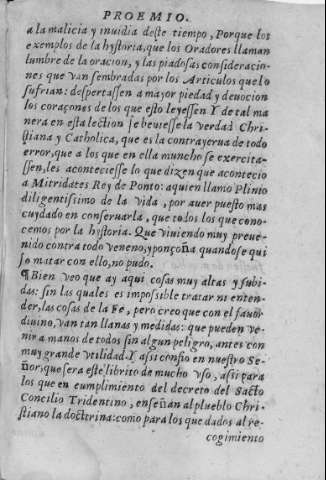 PROEMIO.
a la malicia y inuidia deste tiempo, Porque los
exemplos de la hystoria, que los Oradores llaman
lumbre de la oracion, y las piadosas consideracio-
nes que van sembradas por los Articulos que lo
sufrian: despertassen a mayor piedad y deuocion
los coraçones de los que esto leyessen. Y de tal ma
nera en esta lection se beuiesse la verdad Chri-
stiana y Catholica, que es la contrayerua de todo
error, que a los que en ella muncho se exercita-
ssen, les aconteciesse lo que dizen que acontecio
a Mitridates Rey de Ponto: aquien llamo Plinio
diligentissimo de la vida, por auer puesto mas
cuydado en conseruarla, que todos los que cono-
cemos por la hystoria. Que viuiendo muy preue-
nido contra todo veneno, y ponçoña quando se qui
so matar con ello, no pudo.
¶ Bien veo que ay aqui cosas muy altas y subi-
das: sin las quales es impossible tratar ni enten-
der, las cosas de la Fe, pero creo que con el fauor
diuino, van tan llanas y medidas: que pueden ve-
nir a manos de todos sin algun peligro, antes con
muy grande vtilidad. Y assi confio en nuestro Se-
ñor, que sera este librito de mucho vso, assi para
los que en cumplimiento del decreto del Sacto
Concilio Tridentino, enseñan al plueblo Chri-
stiano la doctrina: como para los que dados al re-
cogimiento